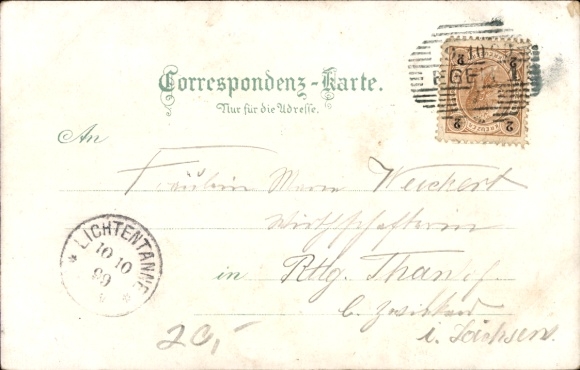 Correspondenz-Karte.
Nur für die Adresse.
An
Fräulein Marie Weichert
Wirthschafterin
in Rttg. Thanhof
b. Zwickau
i. Sachsen.
LICHTENTANNE
10 10
99
10
EGE
2 2
20,-